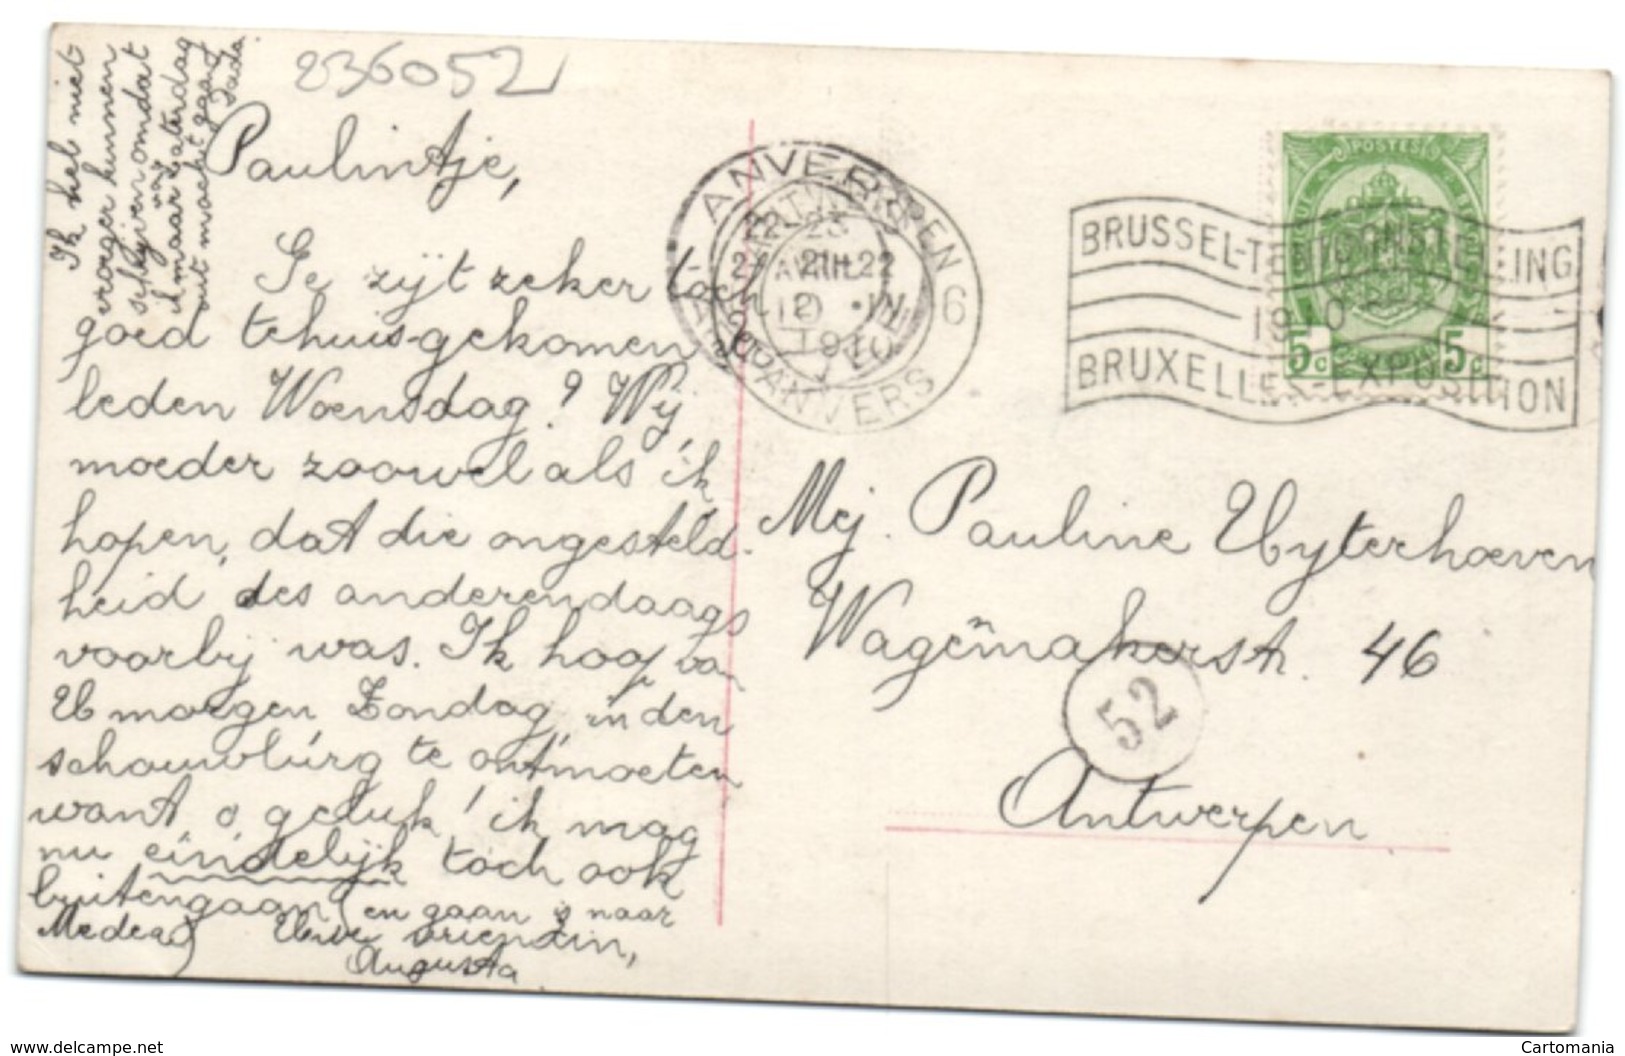 236052
Ik heb niet
vroeger kunnen
schrijven omdat
ik maar zaterdag
uit mocht gaan
Paulintje,
Ge zijt zeker toch
goed tehuis-gekomen
leden Woensdag? Wij
moeder zoowel als ik
hopen, dat die ongesteld-
heid des anderendaags
voorbij was. Ik hoop van
U morgen Zondag in den
schouwburg te ontmoeten
want o geluk! ik mag
nu eindelijk toch ook
buitengaan (en gaan is naar
Medea) Uwe vriendin,
Augusta
ANTWERPEN 6
ANVERS
AVRIL
1910
POSTES
5c 5c
BRUSSEL-TENTOONSTELLING
1910
BRUXELLES-EXPOSITION
Mej. Pauline Uyterhoeven
Wagemakerstr. 46
52
Antwerpen
www.delcampe.net
Cartomania